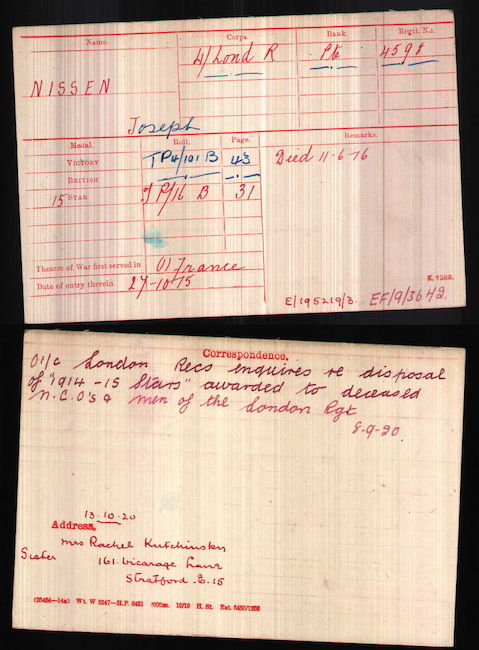 Name.
Corps.
Rank
Regtl. No.
NISSEN
4/Lond R
Pte
4598
Joseph
Medal.
Roll.
Page.
Remarks.
VICTORY
TP4/101 B
43
Died 11-6-16
BRITISH
15 STAR
P/16 B
31
Theatre of War first served in
(1) France
Date of entry therein
27-10-15
K. 1380.
E/195219/3.
EF/9/3642.
Correspondence.
O i/c London Recs enquires re disposal
of "1914-15 Stars" awarded to deceased
N.C.O's & men of the London Rgt
8-9-20.
13.10.20
Address.
Mrs Rachel Kutchinsky
Sister
161. Vicarage Lane
Stratford. E. 15
Wt. W 5347—H.P. 6451 10/19 H. St.